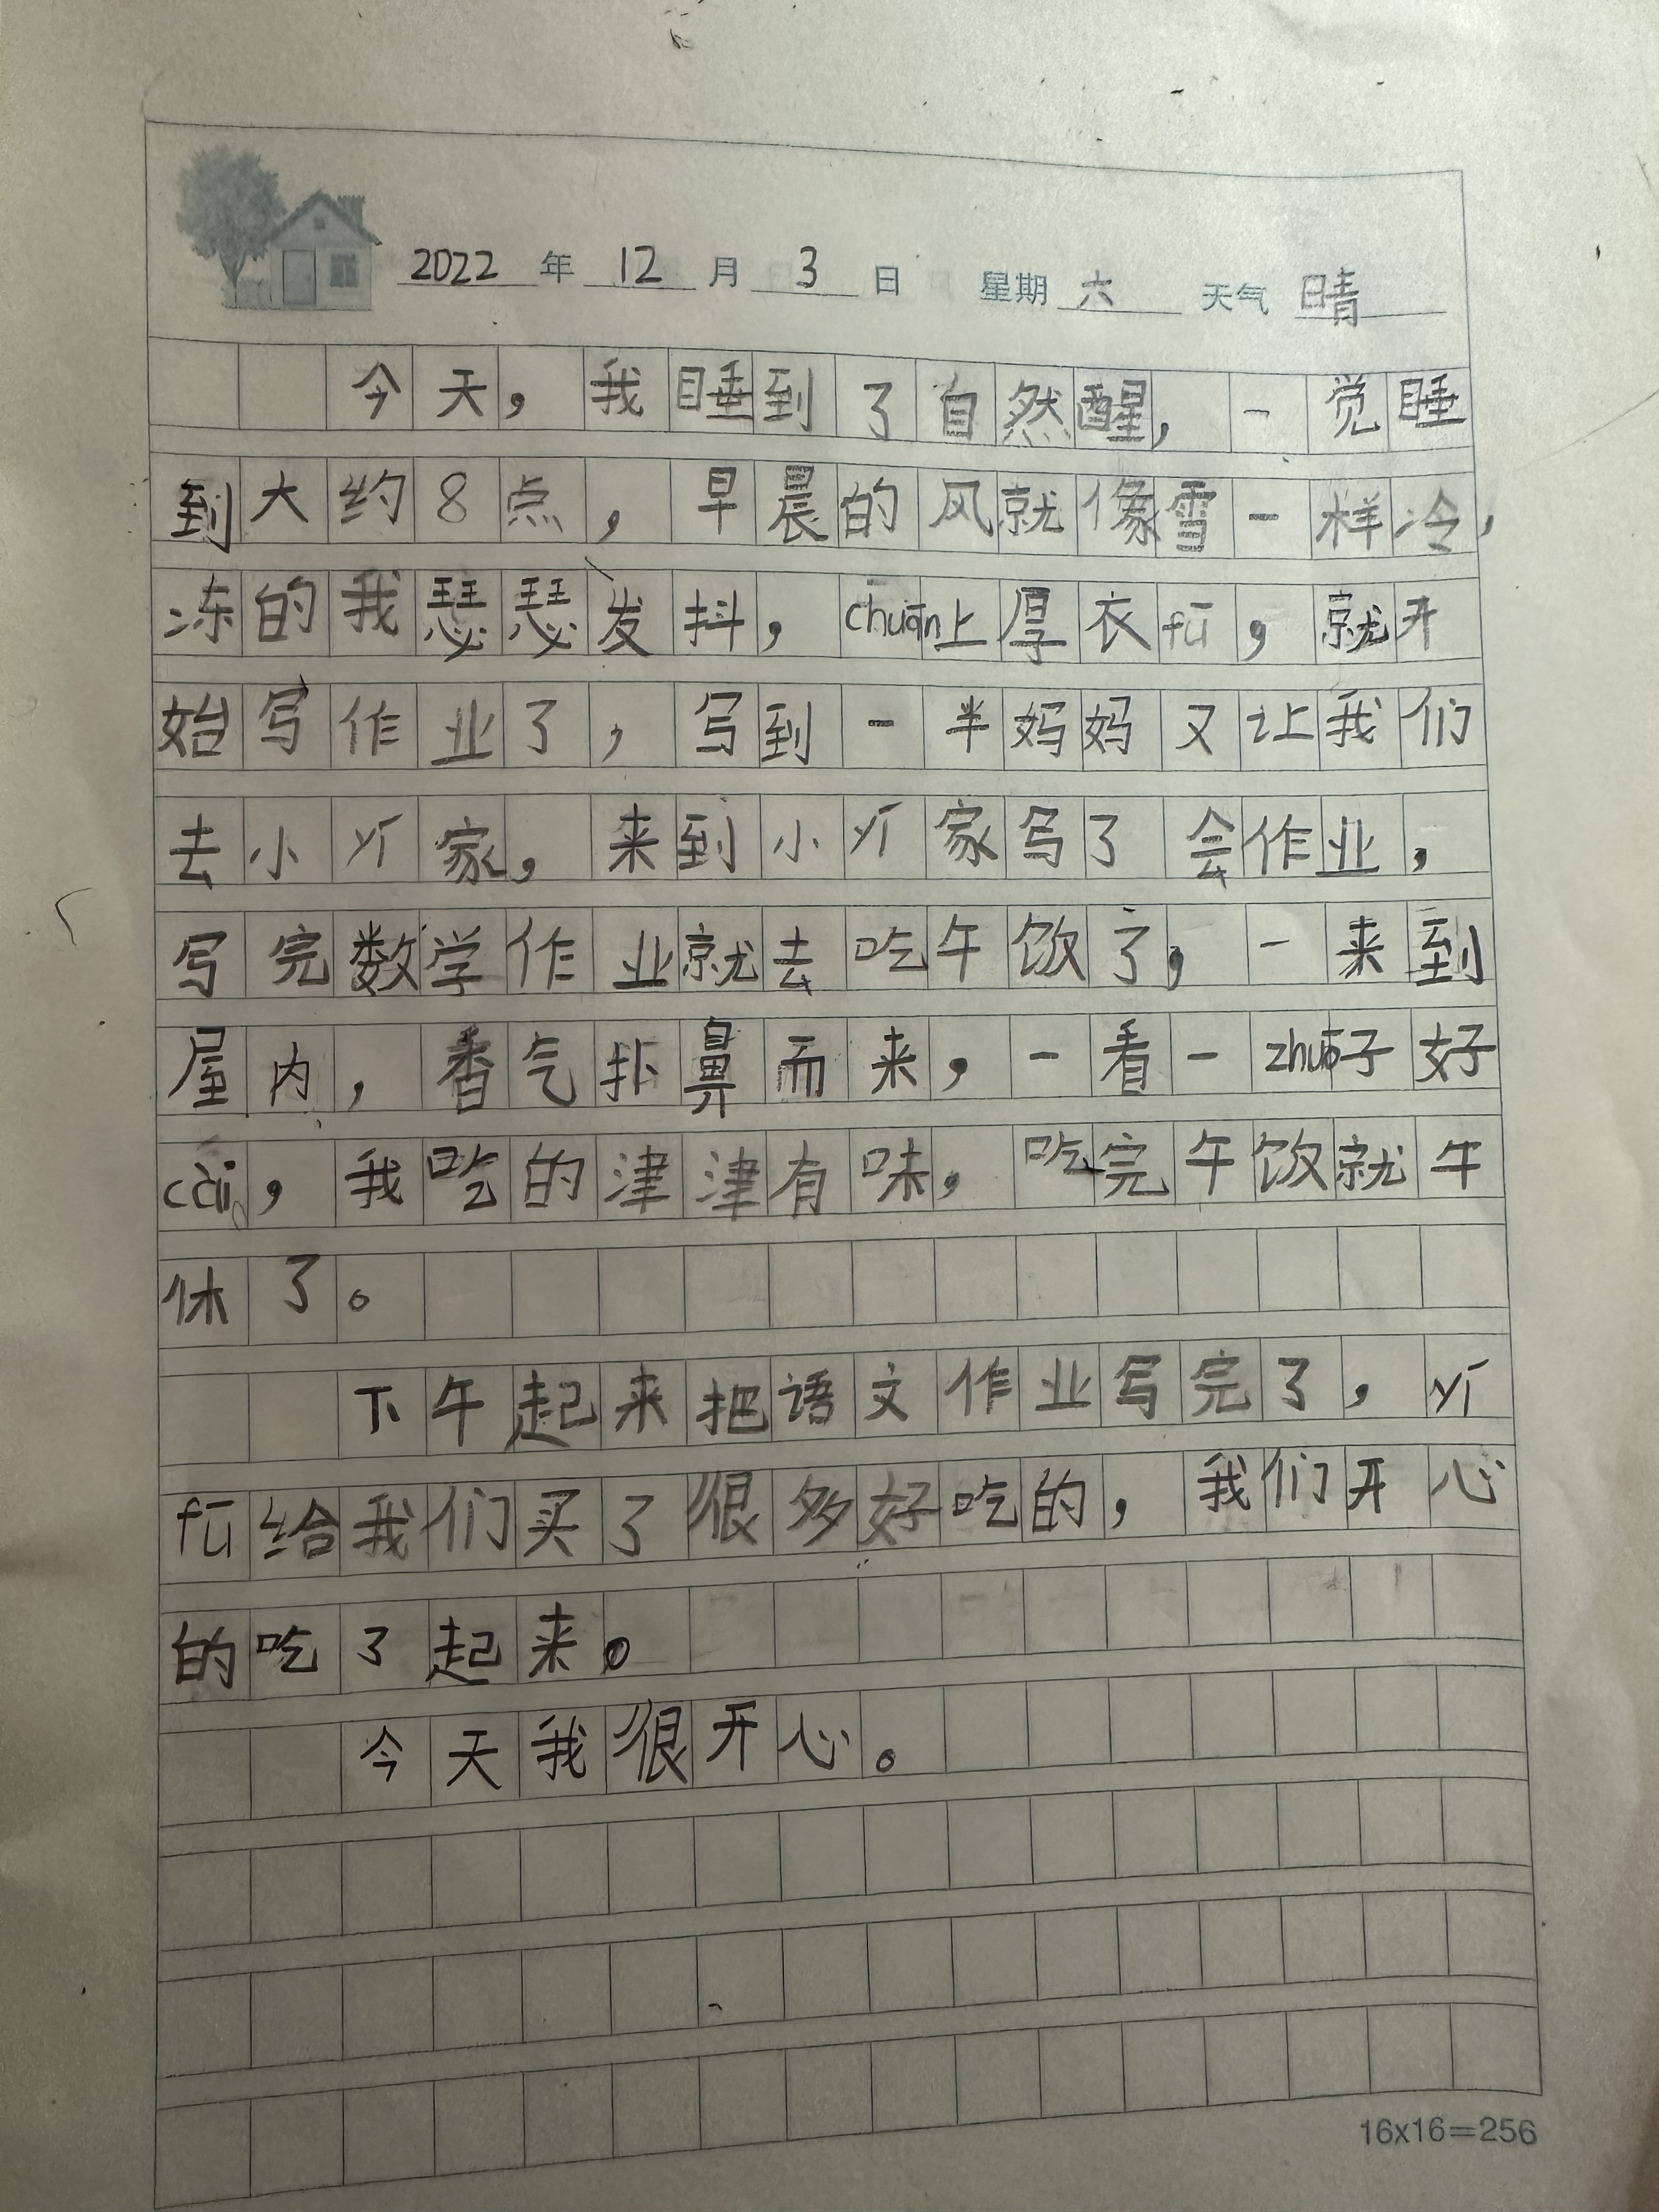 2022 年 12 月 3 日 星期 六 天气 晴
今天，我睡到了自然醒，一觉睡
到大约8点，早晨的风就像雪一样冷，
冻的我瑟瑟发抖，chuān上厚衣fú，就开
始写作业了，写到一半妈妈又让我们
去小yí家，来到小yí家写了会作业，
写完数学作业就去吃午饭了，一来到
屋内，香气扑鼻而来，一看一zhuō子好
cài，我吃的津津有味，吃完午饭就午
休了。
下午起来把语文作业写完了，yí
fū给我们买了很多好吃的，我们开心
的吃了起来。
今天我很开心。
16x16=256